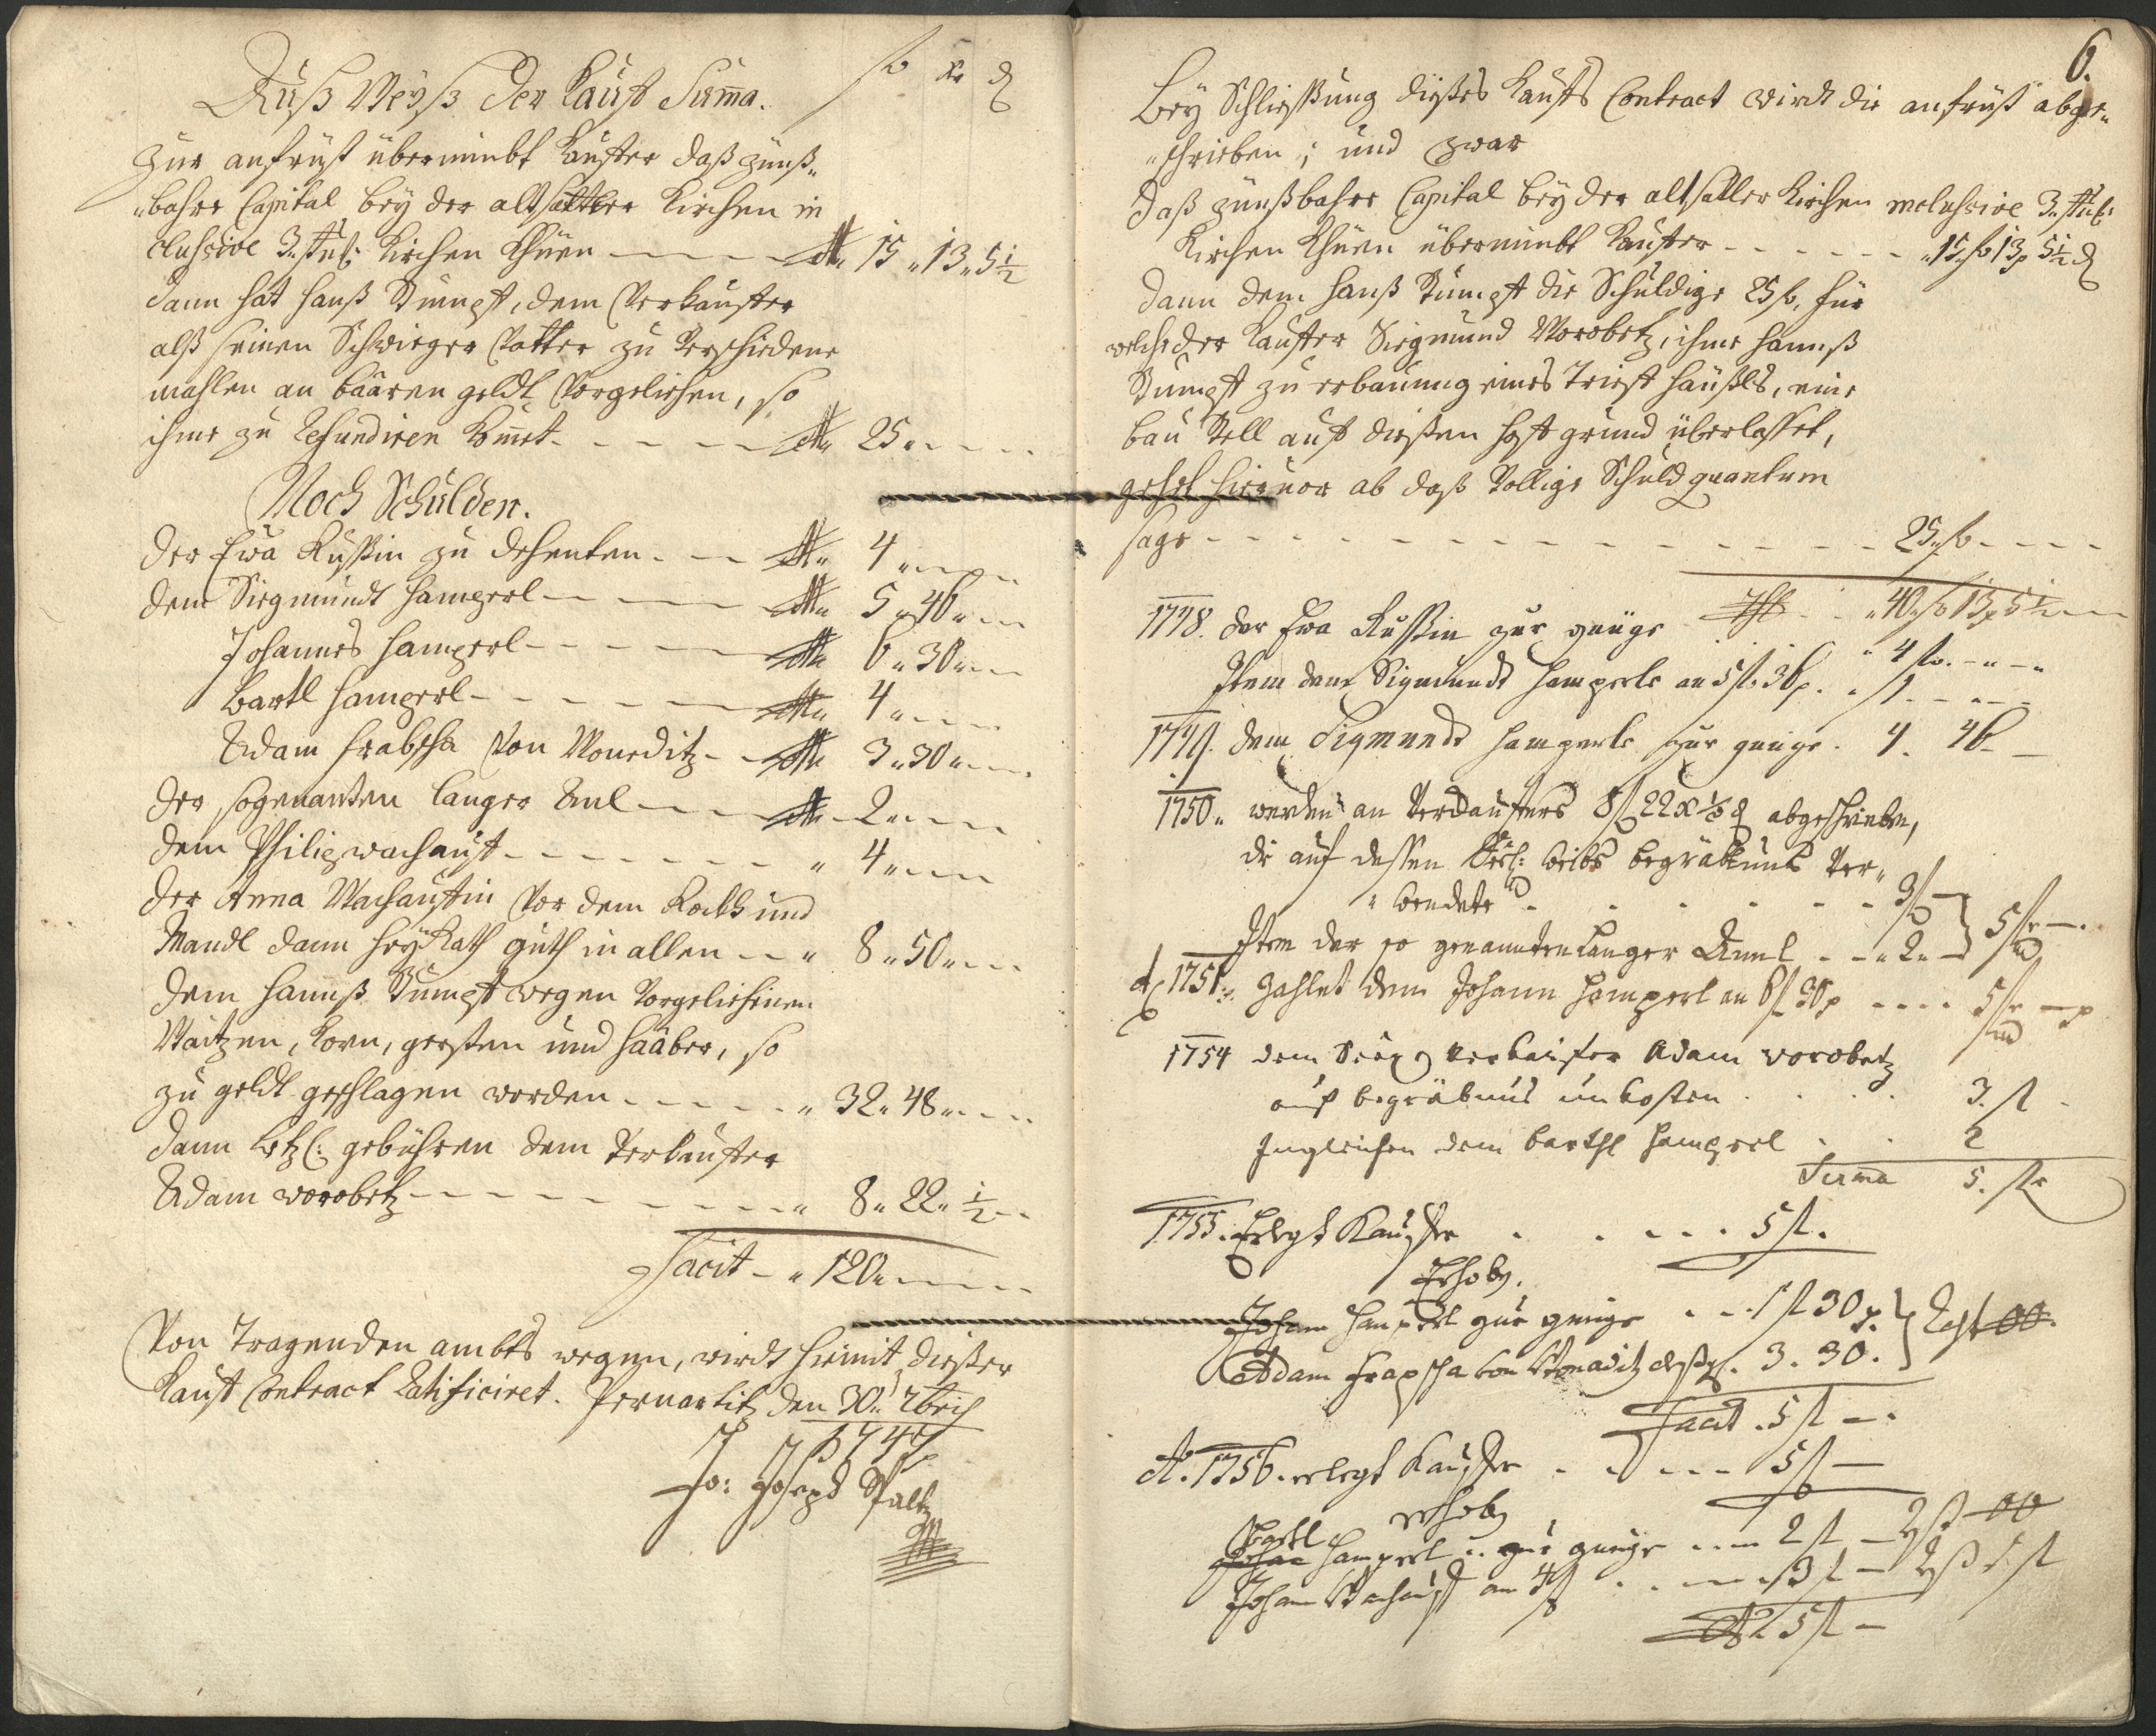 Auß Weyß der Kauf Suma. fl xr ₰
Zur anfrüst übernimbt Kauffer daß zünß„
„bahre Capital bey der altsattler Kirchen in
clusive 3. Kirchen Khüen 15„13„5½
dann hat Hanß Stumpf, dem Verkauffer
alß seinen Schwieger Vatter zu Verschiedene
mahlen an baaren geldt Vorgeliehen, so
ihme zu Refundiren komet 25„
Noch Schulden.
der Ewa Rußin zu dehenten 4„
dem Siegmundt Hamperl 5„46„
Johannes Hamperl 6„30„
Bartl Hamperl 4„
Adam Hrabscha Von Woneditz 3„30„
der sogenanten langer Anl 2„
dem Philip Wachauf „ 4„
der Anna Wachauffin Vor dem Rockh und
Mandl dann HeyRath guth in allen „ 8„50„
dem Hannß Stumpf wegen Vorgeliehenen
Waitzen, Korn, gersten und Haaber, so
zu geldt geschlagen worden „ 32„48„
dann letzl: gebühren dem Verkauffer
Adam Worobetz „ 8„22„½
Facit „ 120„
Von Tragenden ambts wegen, wirdt hiemit dießer
Kauf Contract Ratificiret. Pernartitz den 30„ Xbris
1747
Jo: Joseph Paltz
6.
Bey Schließung dießes Kaufs Contract wirdt die anfrüst abge„
„schrieben; und zwar
Daß zünßbahre Capital bey der altsattler Kirchen inclusive 3.
Kirchen Khüen übernimbt Kauffer „15„fl 13 5½ ₰
Dann dem Hanß Stumpf die Schuldige 25 fl, für
welche der Kauffer Siegmund Worobetz, ihme Hannß
Stumpf zu erbauung eines Trieft Häußls, eine
bau Stell auf dießen Hofgrund überlasset,
gehet hiervon ab daß Völlige Schuld quantum
sage 25„fl
„40„fl 13 5½
1748. der Ewa Rußin zur genüge „ 4 fl
Item dem Sigmundt Hamperle an 5 fl 46 „ 1
1749. dem Sigmundt Hamperle zur genüge. 4. 46
1750„ werden an Verkauffers 8 fl 22 x ½ ₰ abgeschrieben,
die auf dessen Seel: Weibs begräbnuß Ver„
„wendete 3 fl
Item der so genannten langer Annl „2„ 5 fl
A: 1751. Zahlet dem Johann Hamperl an 6 fl 30 5 fl
1754 dem Verkaufer Adam Worobetz
auf begräbnus unkosten 3. fl
Ingleichen dem Barthl Hamperl 2
Suma 5. fl
1755. Erlegt Kauffer 5 fl.
Erhob.
Johann Hamperl zur genüge 1 fl 30. Rest 00.
Adam Hrapscha von Wonaditz 3. 30.
Facit. 5 fl
A: 1756. erlegt Kauffer 5 fl
erhob
Bartl
Johan Hamperl zur genüge 2 fl 00
Johann Wachauf an 4 fl 3 fl 1 fl
5 fl